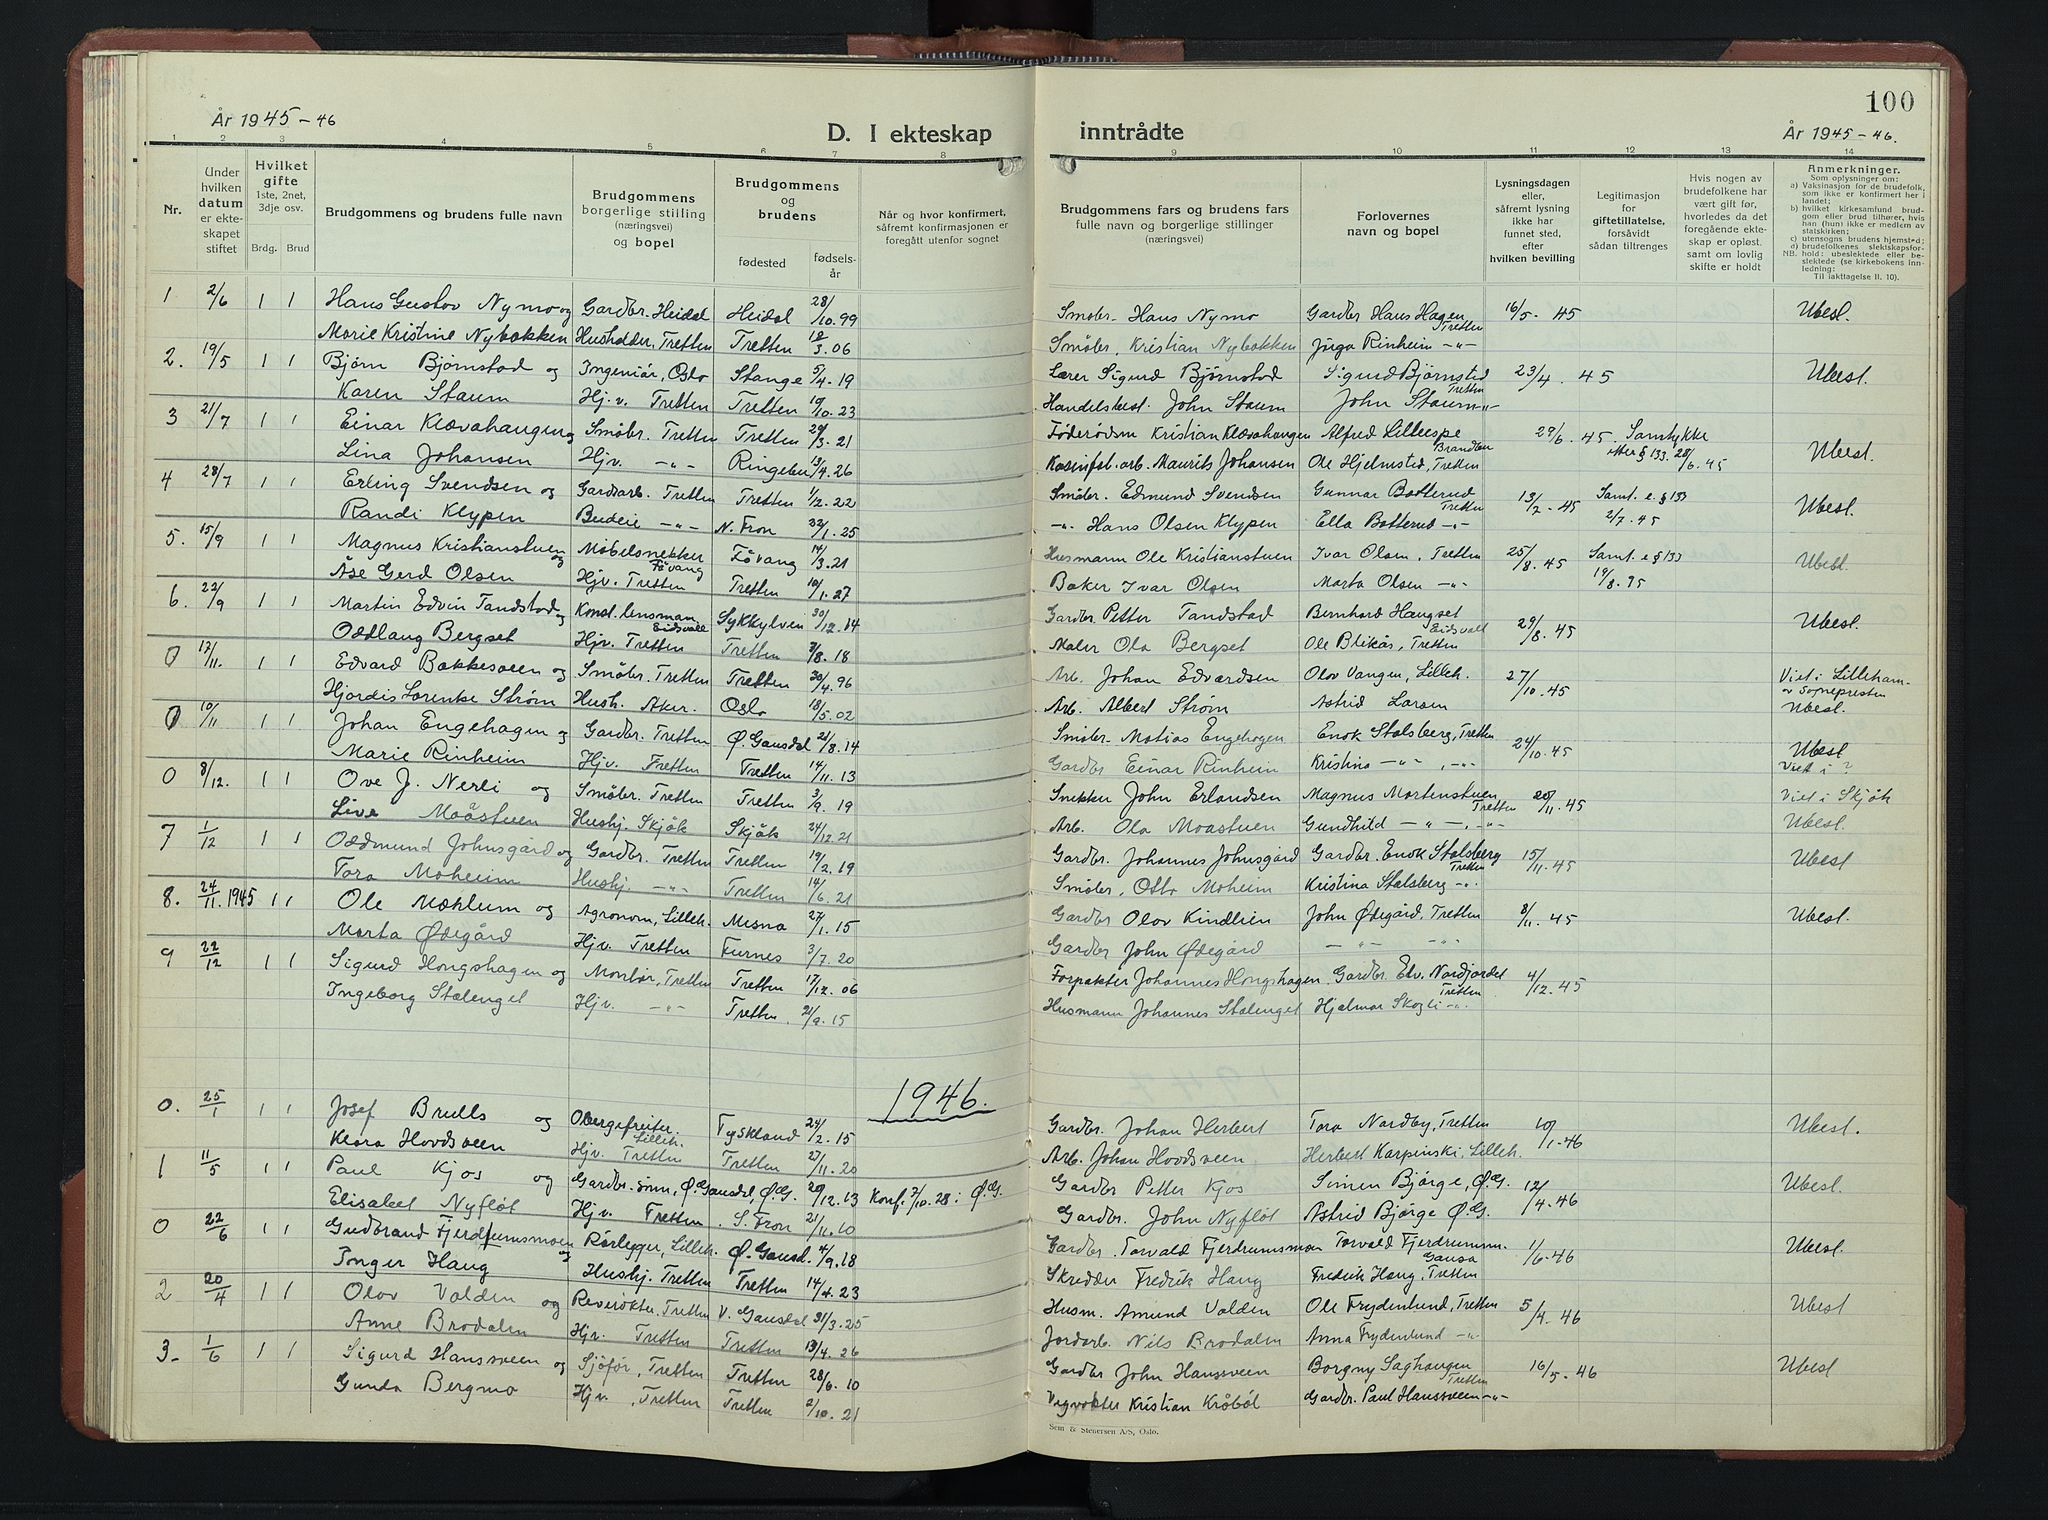 År 1945-46
D. I ekteskap
1 2 3 4 5 6 7 8
Nr.
Under hvilken datum er ekteskapet stiftet
Hvilket gifte 1ste, 2net, 3dje osv.
Brdg. Brud
Brudgommens og brudens fulle navn
Brudgommens borgerlige stilling (næringsvei) og bopel
Brudgommens og brudens
fødested
fødselsår
Når og hvor konfirmert, såfremt konfirmasjonen er foregått utenfor sognet
1 2/6 1 1 Hans Gustav Nymo og Gardbr. Heidal Heidal 28/10.99
Marie Kristine Nybakken Husholder, Tretten Tretten 12/3.06
2. 19/5 1 1 Bjørn Bjørnstad og Ingeniør, Oslo Stange 5/4.19
Karen Staum Hj.v. Tretten Tretten 10/10.23
3 21/7 1 1 Einar Klævahaugen og Småbr. Tretten Tretten 29/3.21
Lina Johansen Hjv. -"- Ringebu 13/4.26
4 28/7 1 1 Erling Svendsen og Gardsarb. Tretten Tretten 1/2.22
Randi Klypen Budeie -"- N. Fron /1.25
5. 15/9 1 1 Magnus Kristianstuen og Møbelsnekker Fåvang Fåvang 14/3.21
Åse Gerd Olsen Hjv. Tretten Tretten 10/1.27
6. 22/9 1 1 Martin Edvin Tandstad og Konst. lensman Eidsvoll Sykkylven 30/12.14
Oddlaug Bergset Hjv. Tretten Tretten 3/8.18
0 17/11. 1 1 Edvard Bakkesveen og Småbr. Tretten Tretten 30/4.96
Hjørdis Lorenke Strøm Hush. Aker. Oslo 18/5.02
0 10/11 1 1 Johan Engehagen og Gardbr. Tretten Ø. Gausdal 21/8.14
Marie Rinheim Hjv. Tretten Tretten 14/11.13
0 8/12. 1 1 Ove J. Nerli og Småbr. Tretten Tretten 3/9.19
Live Moåstuen Hushj. Skjåk Skjåk 24/12.21
7 1/12 1 1 Oddmund Johnsgård og Gardbr. Tretten Tretten 19/2.19
Tora Moheim Hushj. -"- Tretten 14/6.21
8. 24/11. 1945 1 1 Ole Mæhlum og Agronom, Lilleh. Mesna 27/1.15
Marta Ødegård Hjv. Tretten Furnes 3/7.20
9 22/12 1 1 Sigurd Hongshagen og Montør, Tretten Tretten 17/12.06
Ingeborg Stalenget Hjv. -"- Tretten. 21/9.15
1946.
0. 25/1 1 1 Josef Brulls og Obergefreiter. Lilleh. Tyskland 24/2.15
Klara Hovdsveen Hjv. Tretten Tretten 27/11.20
1 11/5 1 1 Paul Kjos og Gardbr.sønn, Ø. Gausdal, Ø.G. 20/12.13 Konf. 7/10.28 i Ø.G.
Elisabet Nyfløt Hjv. Tretten. S. Fron 21/11.10
0 22/6 1 1 Gudbrand Fjerdrumsmoen og Rørlegger, Lilleh. Ø. Gausd. 4/9.18
Inger Haug Hushj. Tretten Tretten 14/4.23
2 20/4 1 1 Olav Valden og Reverøkter, Tretten V. Gausdal 31/3.25
Anne Brodalen Hjv. Tretten Tretten 13/4.26
3- 1/6 1 1 Sigurd Hansveen og Sjåfør, Tretten Tretten 28/6.10
Gunda Bergmo Hjv., Tretten Tretten 2/10.21
100
inntrådte
År 1945-46.
9 10 11 12 13 14
Brudgommens fars og brudens fars fulle navn og borgerlige stillinger (næringsvei)
Forlovernes navn og bopel
Lysningsdagen eller, såfremt lysning ikke har funnet sted, efter hvilken bevilling
Legitimasjon for giftetillatelse, forsåvidt sådan tiltrenges
Hvis nogen av brudefolkene har vært gift før, hvorledes da det foregående ekteskap er opløst, samt om lovlig skifte er holdt
Anmerkninger.
Som oplysninger om:
a) Vaksinasjon for de brudefolk, som ikke er konfirmert her i landet;
b) hvilket kirkesamfund brudgom eller brud tilhører, hvis han (hun) ikke er medlem av statskirken;
c) utensogns brudens hjemsted;
d) brudefolkenes slektskapsforhold: ubeslektede eller beslektede (se kirkebokens innledning:
NB.
Til iakttagelse II. 10).
Småbr. Hans Nymo Gardbr Hans Hagen Tretten 16/5-45 Ubesl.
Småbr, Kristian Nybakken Jørga Rinheim -"-
Lærer Sigurd Bjørnstad Sigurd Bjørnstad Tretten 23/4.45 Ubesl.
Handelsbest. John Staum John Staum -"-
Føderådsm Kristian Klævahaugen Alfred Lilleespe Brandbu 29/6.45. Samtykke etter §133. 28/6.45 Ubesl.
Kasinfst.arb. Maurits Johansen Ole Hjelmstad, Tretten
Småbr. Edmund Svendsen Gunnar Botterud Tretten 13/7-45 Samt. e. §133 2/7.45 Ubesl.
-"- Hans Olsen Klypen Ella Botterud -"-
Husmann Ole Kristianstuen Ivar Olsen, Tretten 25/8.45 Samt. e §133 19/8.45 Ubesl.
Baker Ivar Olsen Marta Olsen -"-
Gardbr Petter Tandstad Bernhard Haugset Eidsvoll 29/8.45 Ubesl.
Maler Ola Bergset Ole Blikås, Tretten
Arb. Johan Edvardsen Olov Vangen, Lilleh. 27/10.45 Viet i Lilleham- av Sognepresten
Arb. Albert Strøm Astrid Larsen Ubesl.
Småbr. Matias Engehagen Enok Stalsberg, Tretten 24/10.45 Ubesl
Gardbr Einar Rinheim Kristina -"-, -"- Viet i ?
Snekker John Erlandsen Magnus Martenstuen Tretten 20/11.45 Viet i Skjåk
Arb. Ola Moastuen Gundhild -"-, -"- Ubesl.
Gardbr. Johannes Johnsgård Gardbr. Enok Stalsberg Tretten 15/11.45 Ubesl
Småbr, Otto Moheim Kristina Stalsberg -"-
Gardbr Olov Kindlien John Ødegård, Tretten 8/11.45 Ubesl.
Gardbr John Ødegård -"- -"-
Forpakter Johannes Hongshagen Gardbr. Edv. Nordjordet Tretten 4/12.45
Husmann Johannes Stalenget Hjalmar Skogli -"-
Gardbr. Johan Herbert Tora Nordby, Tretten 10/1-46 Ubesl.
Arb. Johan Hovdsveen Herbert Karpinski, Lilleh.
Gardbr Petter Kjos Simen Bjørge, Ø.G. 12/4.46 Ubesl.
Gardbr. John Nyfløt Astrid Bjørge Ø.G.
Gardbr. Torvald Fjerdrumsmoen Torvald Fjerdrumsm. Gausd. 1/6-46 Ubesl.
Skredder Fredrik Haug Fredrik Haug, Tretten
Husm. Amund Valden Ole Frydenlund, Tretten 5/4.46 Ubesl
Jordarb. Nils Brodalen Anna Frydenlund -"-
Gardbr John Hansveen Borgny Saghaugen Tretten 16/5-46 Ubesl
Vegvokter Kristian Kråbøl Gardbr. Paul Hansveen -"-
Sem & Stenersen A/S, Oslo.